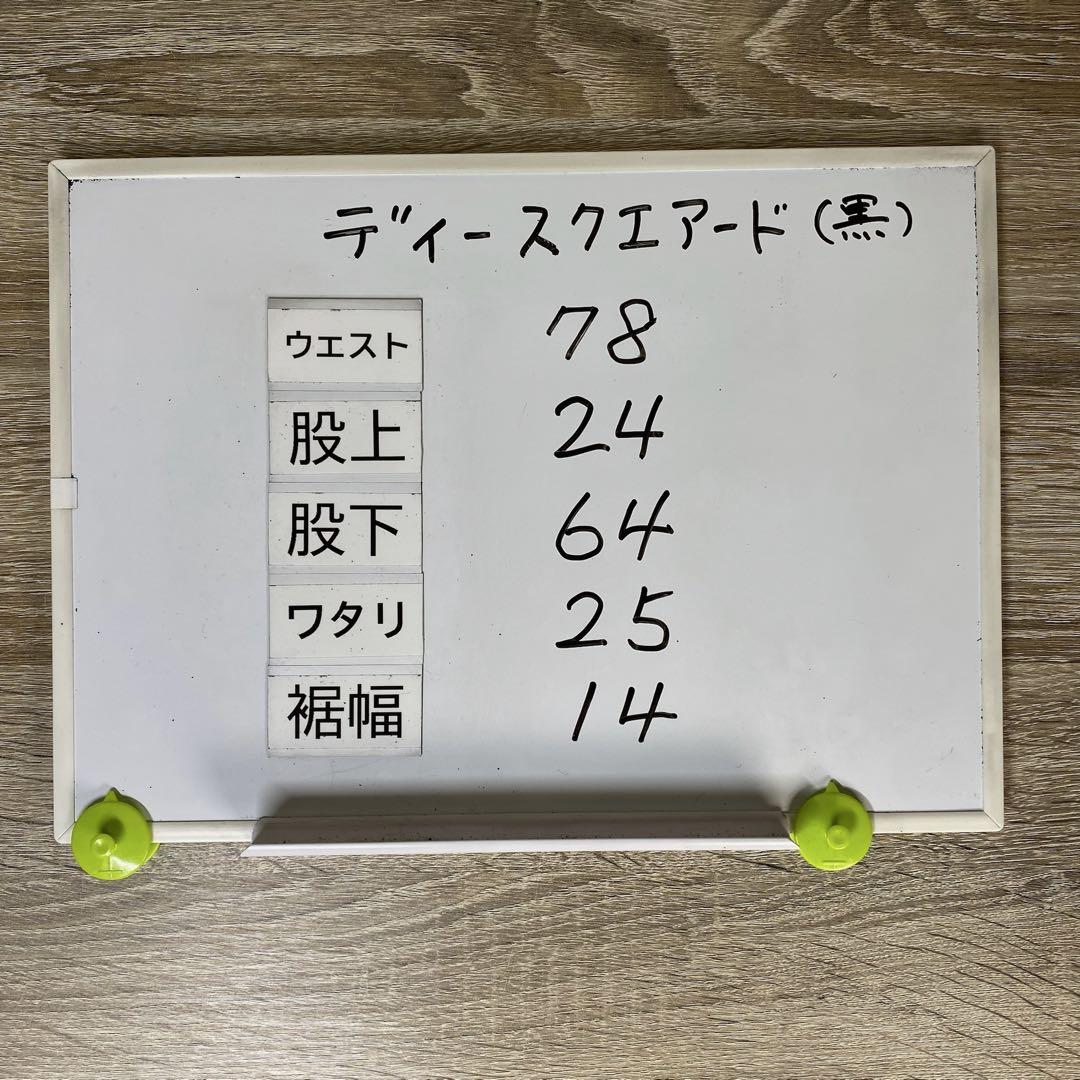 ディースクエアード(黒)
ウエスト 78
股上 24
股下 64
ワタリ 25
裾幅 14